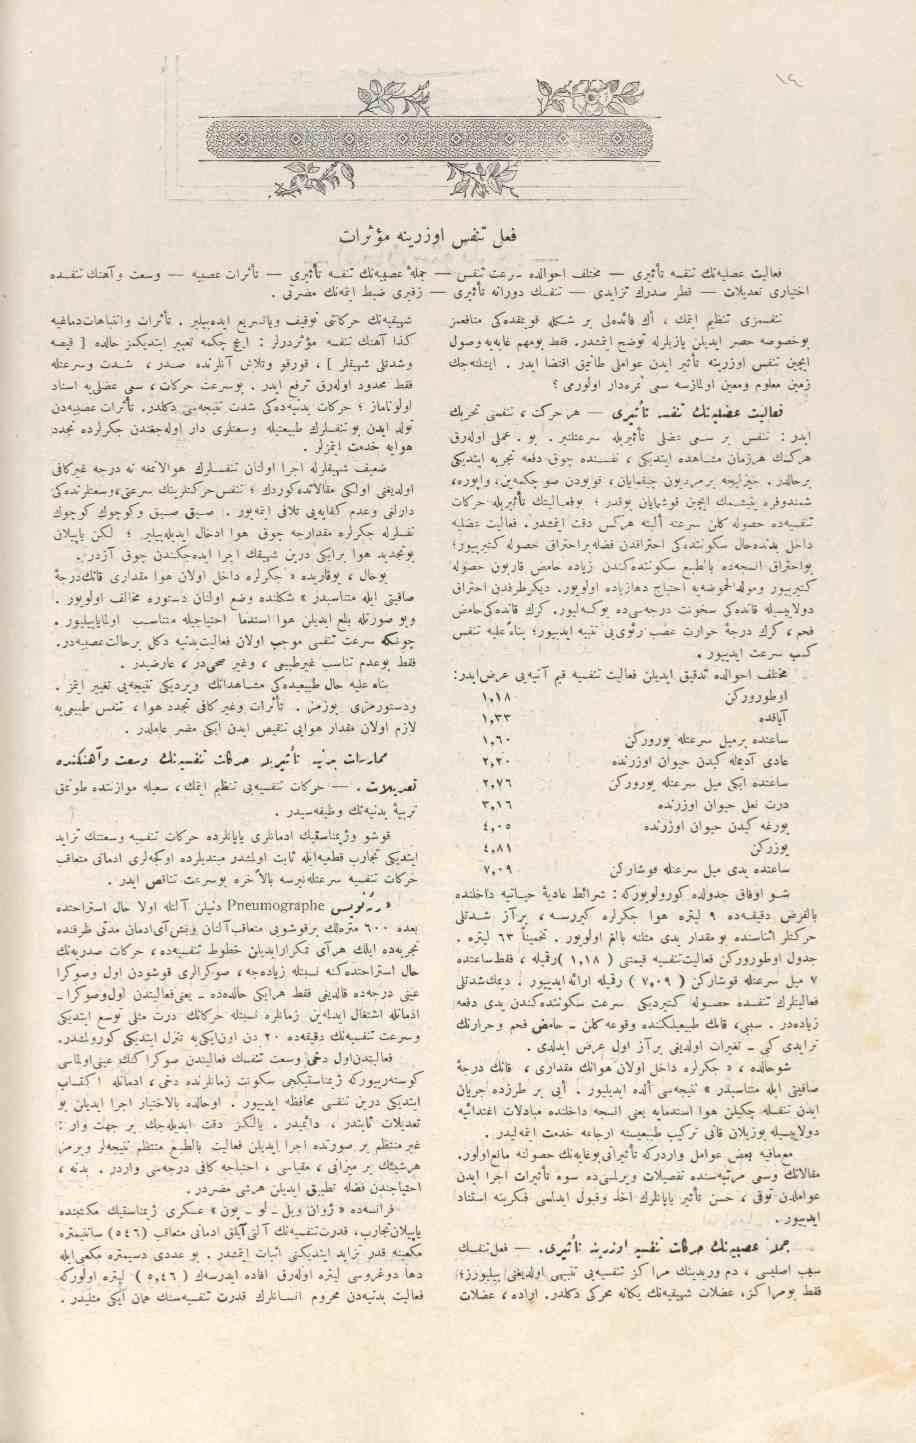 ١٤
فعل تنفس اوزرینه مؤثرات
فعالیت عضلیه‌نك تنفسه تأثیری — مختلف احوالده سرعت تنفس — جملهٔ عصبیه‌نك تنفسه تأثیری — تأثرات عصبیه — وسعت و آهنك تنفسده
اختیاری تعدیلات — قطر صدرك تزایدی — تنفسك دورانه تأثیری — زفیری ضبط ایتمه‌نك مضرتی .
تنفسمزی تنظیم ایتمك ، أك فائده‌لی بر شكله قویمقده‌كی منافعمز
بوخصوصه حصر ایدیلن یازیلرله توضح ایتمشدر. فقط بومهم غایه‌یه وصول
ایچین تنفس اوزرینه تأثیر ایدن عواملی طانیمق اقتضا ایدر . ایشله‌نه‌جك
زمین معلوم ومعین اولمازسه سعی ثمره‌دار اولورمی ؟
فعالیت عضلیه‌نك تنفسه تأثیری — هر حركت ، تنفسی تحریك
ایدر : تنفس بر سعی عضلی تأثیریله سرعتلنیر . بو . عملی اوله‌رق
هركسك هرزمان مشاهده ایتدیكی ، نفسنده چوق دفعه تجربه ایتدیكی
برحالدر. خیزلیجه برمردیون چیقمایان ، قویودن صو چكمه‌ین، واپوره،
شمندوفره یتیشمك ایچین قوشمایان یوقدر ؛ بوفعالیتك تأثیریله حركات
تنفسیه‌ده حصوله كلن سرعته ألبته هركس دقت ایتمشدر. فعالیت عضلیه
داخل بدنده‌حال سكوننده‌كی احتراقدن فضله‌براحتراق حصوله‌كتیرییور؛
بواحتراق انسجه‌ده بالطبع سكوننده‌كندن زیاده حامض قاربون حصوله
كتیرییور ومولدالحموضه‌یه احتیاج دهازیاده اولویور. دیكرطرفدن احتراق
دولاییسیله قانده‌كی سخونت درجه‌سی‌ده یوكسه‌لیور. كرك قانده‌كی‌حامض
فحم ، كرك درجهٔ حرارت عصب رئوی‌یی تنبیه ایدییور؛ بناءً علیه تنفس
كسب سرعت ایدییور .
مختلف احوالده تدقیق ایدیلن فعالیت تنفسیه قیم آتیه‌یی عرض‌ایدر:
اوطورورکن ١,١٨
آیاقده ١,٣٣
ساعتده برمیل سرعتله یورورکن ١,٦٠
عادی آدیمله كیدن حیوان اوزرنده ٢,٢٠
ساعتده ایكی میل سرعتله یورورکن ٢,٧٦
درت نعل حیوان اوزرنده ٣,١٦
یورغه كیدن حیوان اوزرنده ٤,٠٥
یوزركن ٤,٨١
ساعتده یدی میل سرعتله قوشاركن ٧,٠٩
شو اوفاق جدولده كورولویوركه : شرائط عادیهٔ حیاتیه داخلنده
بالفرض دقیقه‌ده ٩ لیتره هوا جكرلره كیررسه ، برآز شدتلی
حركتلر اثناسنده بومقدار یدی مثلنه بالغ اولویور . تخمیناً ٦٣ لیتره .
جدول اوطورورکن فعالیت‌تنفسیه قیمتنی ( ١,١٨ )رقمیله ، فقط‌ساعتده
٧ میل سرعتله قوشاركن ( ٧,٠٩ ) رقمیله ارائه‌ایدییور . دیمك‌شدتلی
فعالیتلرك تنفسده حصوله كتیردیكی سرعت سكوننده‌كندن یدی دفعه
زیاده‌در . سببی، قانك طبیعیلكنده وقوعه كلن - حامض فحم وحرارتك
تزایدی كبی - تغیرات اولدیغی برآز اول عرض ایدلدی .
شوحالده ، « جكرلره داخل اولان هوانك مقداری ، قانك درجهٔ
صافیتی ایله متناسبدر » نتیجه‌سی ألده ایدیلیور . أیی بر طرزده جریان
ایدن تنفسله چكیلن هوا استدمایه یعنی انسجه داخلنده مبادلات اغتدائیه
دولاییسیله بوزیلان قانی تركیب طبیعیسنه ارجاعه خدمت ایتمه‌لیدر .
مع‌مافیه بعض عوامل واردركه تأثیراتی‌بوغایه‌نك حصولنه مانع‌اولور.
مقالاتك وسعی مرتبه‌سنده تفصیلات ویرلسی‌ده سوء تأثیرات اجرا ایدن
عواملدن توقی ، حسن تأثیر یاپانلرك اخذ وقبول ایدلسی فكرینه استناد
ایدییور .
جملهٔ عصبیه‌نك حركات تنفسیه اوزرینه تأثیری. — فعل‌تنفسك
سبب اصلیسی ، دم وریدینك مراكز تنفسیه‌یی تنبیهی اولدیغنی بیلیورز؛
فقط بومراكز، عضلات شهیقیه‌نك یكانه محركی دكلدر. اراده ، عضلات
شهیقیه‌نك حركاتنی توقیف ویاتسریع ایده‌بیلیر . تأثرات وانتباهات‌دماغیه
كذا آهنك تنفسه مؤثردرلر : ایچ چكمه تعبیر ایتدیكمز حالده [ قیصه
وشدتلی شهیقلر ] ، قورقو وتلاش آنلرنده صدر ، شدت وسرعتله
فقط محدود اوله‌رق ترفع ایدر . بوسرعت حركات ، سعی عضلی‌یه اسناد
اولوناماز ؛ حركات بدنیه‌ده‌كی شدت نتیجه‌سی دكلدر. تأثرات عصبیه‌دن
تولد ایدن بوتنفسلرك طبیعتیله وسعتلری دار اوله‌جغندن جكرلرده تجدد
هوایه خدمت ایتمزلر .
ضعیف شهیقلرله اجرا اولنان تنفسلرك هوالانمغه نه درجه غیركافی
اولدیغنی اولكی مقالاتده‌كوردك ؛ تنفس‌حركتلرینك سرعتی،وسعتلرنده‌كی
دارلغی وعدم كفایه‌یی تلافی ایتمه‌یور . صیق صیق وكوچوك كوچوك
نفسلرله جكرلره مقدارجه چوق هوا ادخال ایدیله‌بیلیر ؛ لكن یاپیلان
بوتجدید هوا برایكی درین شهیقك اجرا ایده‌جكندن چوق آزدر.
بوحال ، یوقاریده « جكرلره داخل اولان هوا مقداری قانك‌درجهٔ
صافیتی ایله متناسبدر » شكلنده وضع اولنان دستوره مخالف اولویور .
وبو صورتله بلع ایدیلن هوا استدما احتیاجیله متناسب اولمایابیلیور .
چونكه سرعت تنفسی موجب اولان فعالیت‌بدنیه دكل برحالت‌عصبیه‌در.
فقط بوعدم تناسب غیرطبیعی ، وغیر صحی‌در ، عارضیدر .
بناء علیه حال طبیعیده‌كی مشاهداتك ویردیكی نتیجه‌یی تغییر ایتمز .
ودستورمزی بوزمز . تأثرات وغیركافی تجدد هوا ، تنفس طبیعی‌یه
لازم اولان مقدار هوایی تنقیص ایدن ایكی مضر عاملدر .
ممارسات بدنیه تأثیریله حركات تنفسیه‌نك وسعت وآهنكنده
تعدیلات . — حركات تنفسیه‌یی تنظیم ایتمك ، سعیله موازنتده طوتمق
تربیهٔ بدنیه‌نك وظیفه‌سیدر .
قوشو وژیمناستیك ادمانلری یاپانلرده حركات تنفسیه وسعتنك تزاید
ایتدیكی تجارب قطعیه‌ایله ثابت اولمشدر مبتدیلرده اوكجه‌لری ادمانی متعاقب
حركات تنفسیه سرعتله‌نیرسه بالآخره بوسرعت تناقص ایدر .
Pneumographe دنیلن آلتله اولا حال استراحتده
بعده ٦٠٠ متره‌لك برقوشویی متعاقب‌آلنان وبش‌آی‌ادمان مدتی ظرفنده
تجربه‌ده ایلك هرآی تكرارایدیلن خطوط تنفسیه‌ده ، حركات صدریه‌نك
حال استراحتده‌كنه نسبتله زیاده‌جه ، صوكرالری قوشودن اول وصوكرا
عینی درجه‌ده قالدیغی فقط هرایكی حالده‌ده - یعنی‌فعالیتدن اول‌وصوكرا -
ادمانله اشتغال ایدیله‌ین زمانلره نسبتله حركاتك درت مثلی توسع ایتدیكی
وسرعت تنفسیه‌نك دقیقه‌ده ٢٠ دن اون‌ایكی‌یه تنزل ایتدیكی كورولمشدر.
فعالیتدن‌اول دخی وسعت تنفسك فعالیتدن صوكراكنك عینی‌اولماسی
كوسته‌رییوركه ژیمناستیكجی سكونت زمانلرنده دخی ، ادمانله اكتساب
ایتدیكی درین تنفسی محافظه ایدییور . اوحالده بالاختیار اجرا ایدیلن بو
تعدیلات ثابتدر ، دائمیدر . یالكز دقت ایدیله‌جك بر جهت وار :
غیر منتظم بر صورتده اجرا ایدیلن فعالیت بالطبع منتظم نتیجه‌لر ویرمز.
هرشیئك بر میزانی ، مقیاسی ، احتیاجه كافی درجه‌سی واردر . بدنه ،
احتیاجندن فضله تطبیق ایدیلن هرشی مضردر.
فرانسه‌ده « ژوان ویل - لو - پون » عسكری ژیمناستیك مكتبنده
یاپیلان‌تجارب، قدرت‌تنفسیه‌نك آلتی‌آیلق ادمانی متعاقب (٥٤٦) سانتیمتره
مكعبنه قدر تزاید ایتدیكنی اثبات ایتمشدر. بو عددی دسیمتره مكعبی‌ایله
دها دوغروسی لیتره اوله‌رق افاده ایدرسه‌ك ( ٥,٤٦ ) لیتره اولوركه
فعالیت بدنیه‌دن محروم انسانلرك قدرت تنفسیه‌سنك همان ایكی مثلیدر .